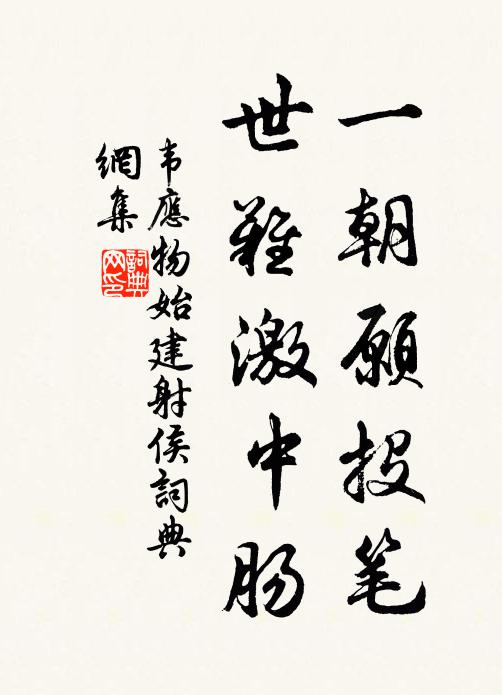 一朝願投笔
世難激中肠
韦應物始建射侯詞典
網集
詞典网印